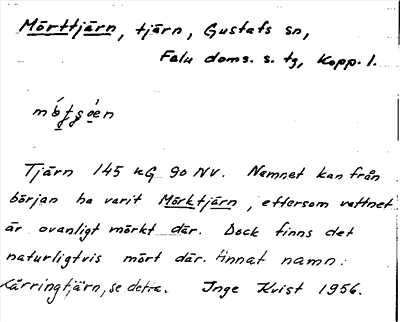 Mörttjärn, tjärn, Gustafs sn,
Falu doms. s. tg, Kopp. l.
Tjärn 145 kG 90 NV. Namnet kan från
början ha varit Mörktjärn, eftersom vattnet
är ovanligt mörkt där. Dock finns det
naturligtvis mört där. Annat namn:
Kärringtjärn, se detta. Inge Kvist 1956.